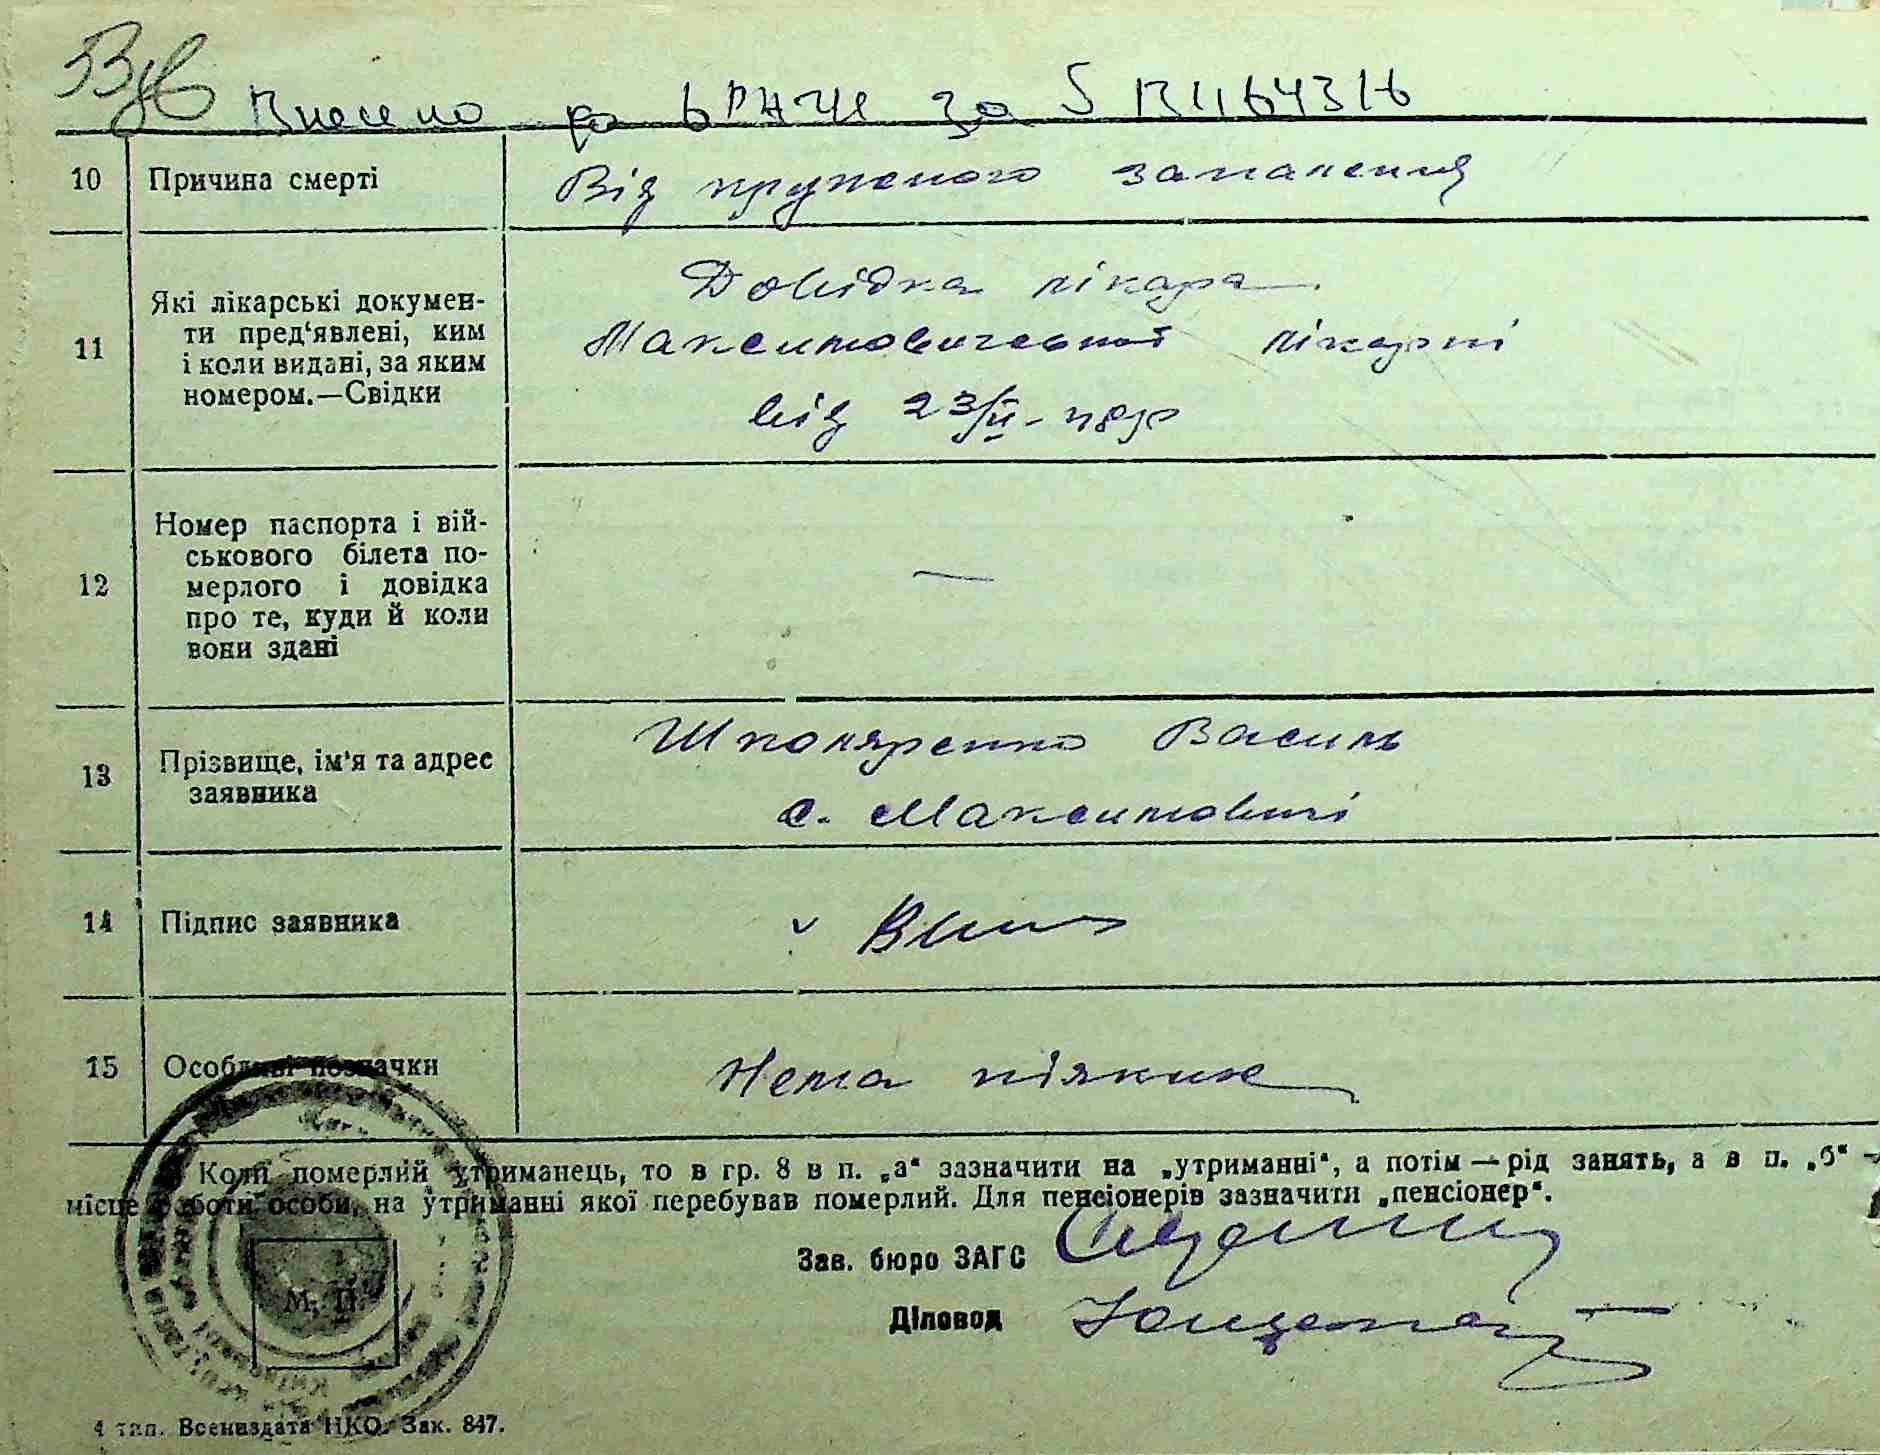 Внесено до ДРАЦС за
10 Причина смерті Від крупозного запалення
11 Які лікарські докумен-
ти пред‘явлені, ким
і коли видані, за яким
номером.—Свідки
Довідка лікаря
Максимовичської лікарні
від 23/II-48р
12 Номер паспорта і вій-
ськового білета по-
мерлого і довідка
про те, куди й коли
вони здані
—
13 Прізвище, ім‘я та адрес
заявника
Школяренко Василь
с. Максимовичі
14 Підпис заявника
15 Особливі позначки Нема ніяких
Коли померлий утриманець, то в гр. 8 в п. „а“ зазначити на „утриманні“, а потім — рід занять, а в п. „б“ —
місце роботи особи, на утриманні якої перебував померлий. Для пенсіонерів зазначити „пенсіонер“.
Зав. бюро ЗАГС
Діловод
М. П.
4 тип. Воениздата НКО. Зак. 847.